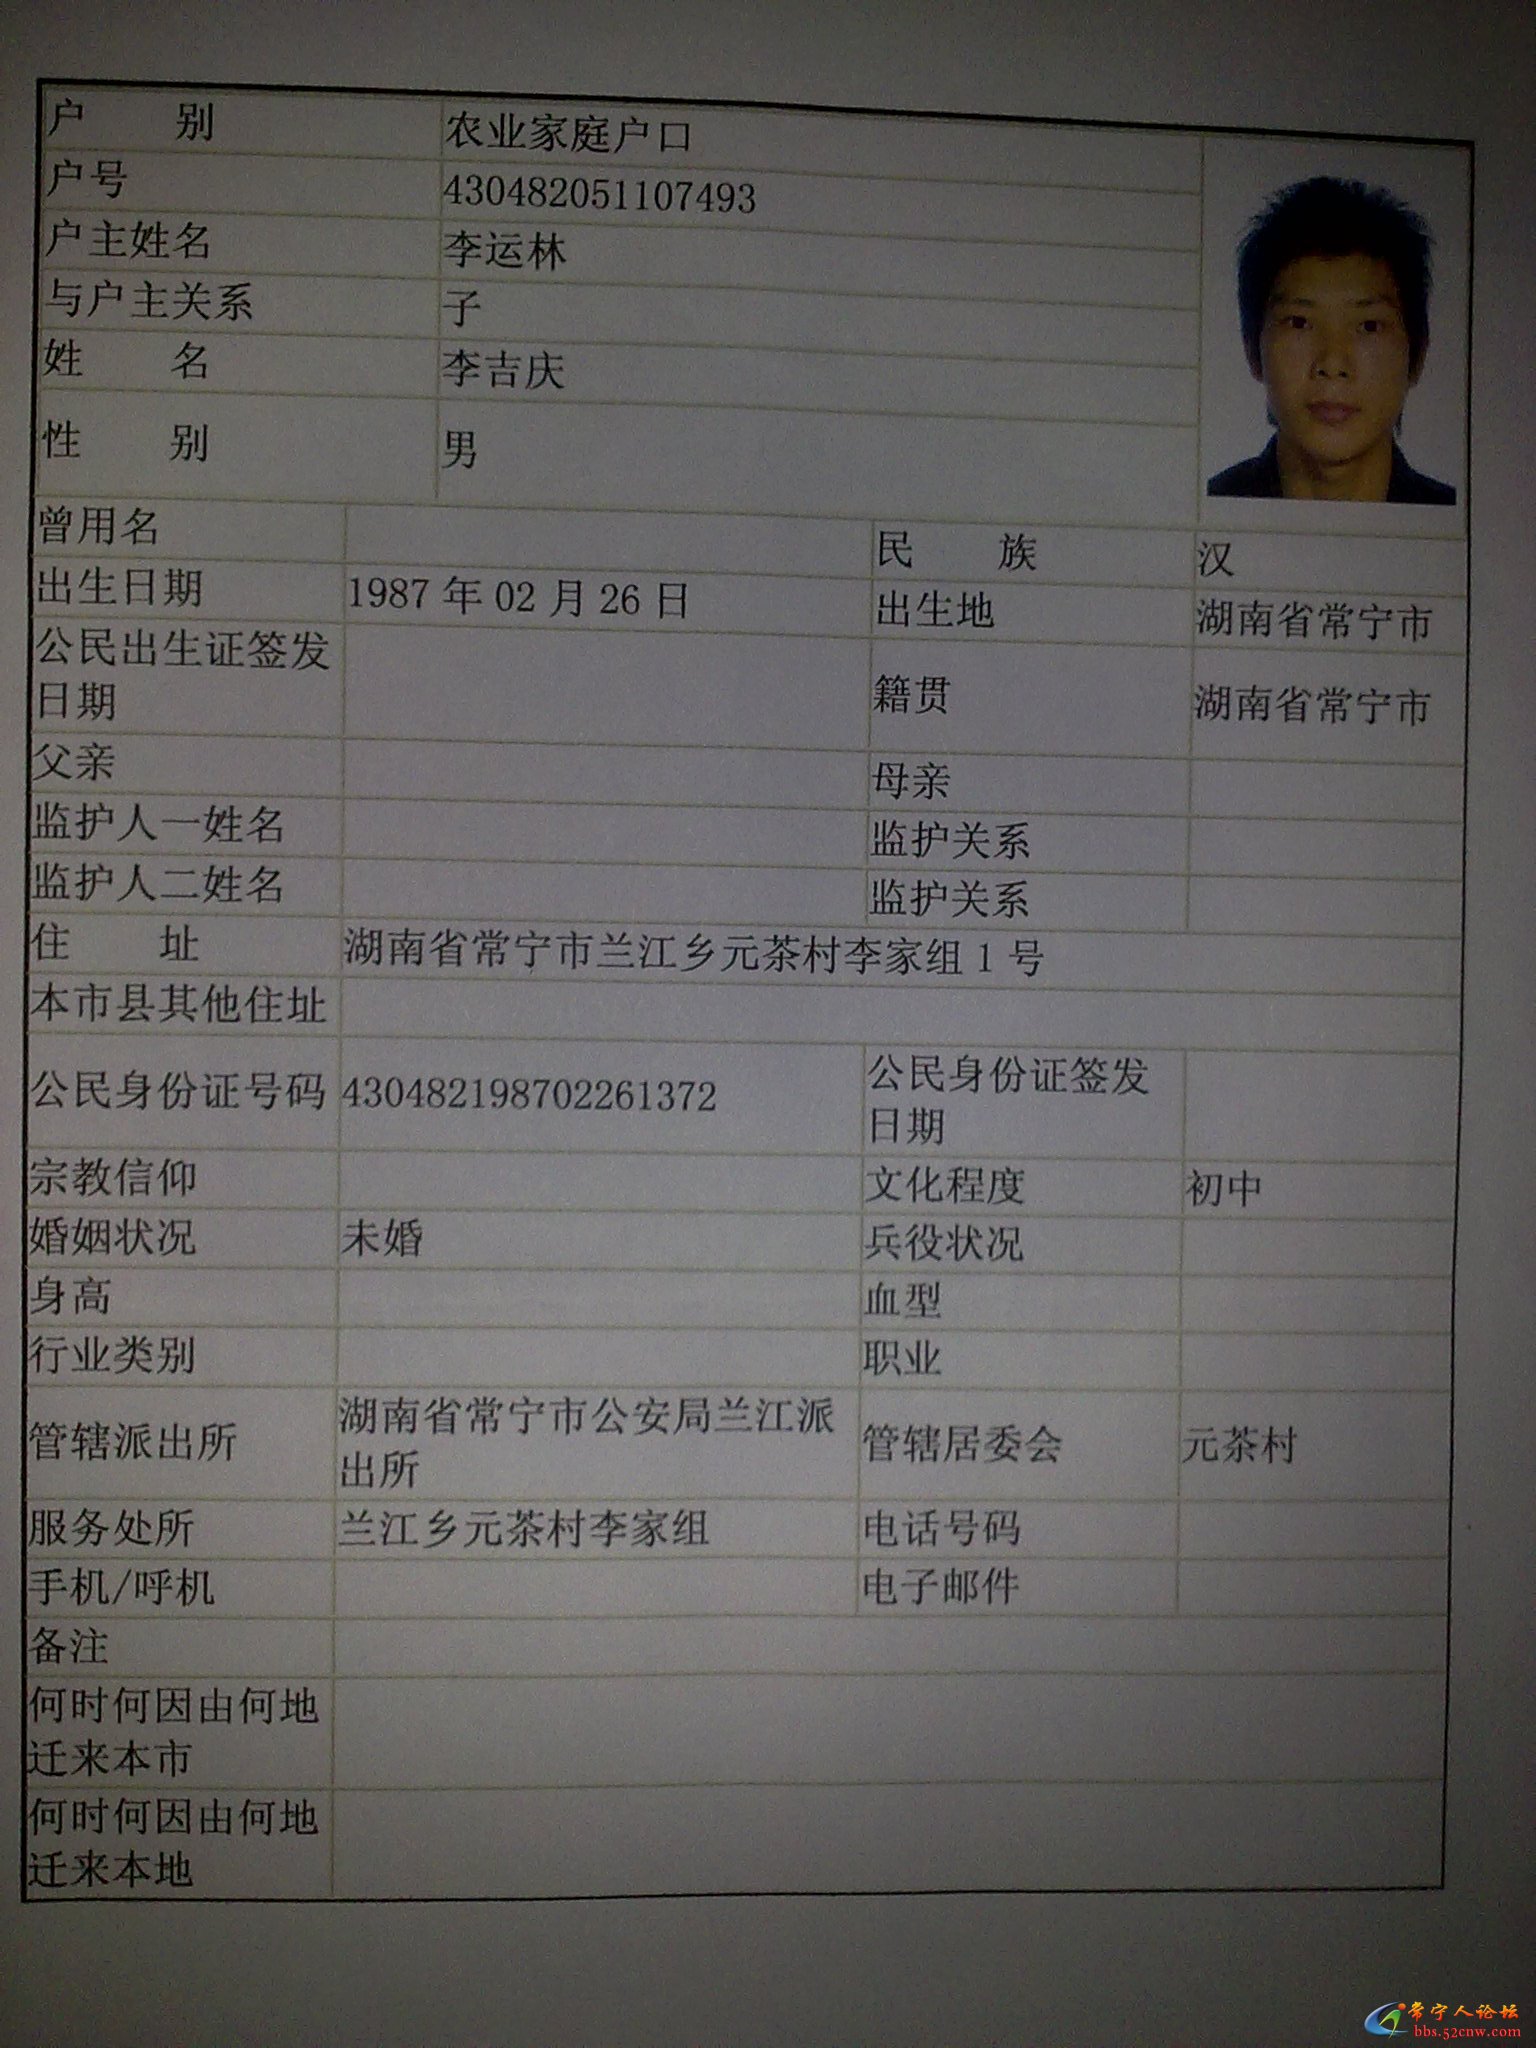 户 别 农业家庭户口
户号 430482051107493
户主姓名 李运林
与户主关系 子
姓 名 李吉庆
性 别 男
曾用名 民 族 汉
出生日期 1987 年 02 月 26 日 出生地 湖南省常宁市
公民出生证签发
日期 籍贯 湖南省常宁市
父亲 母亲
监护人一姓名 监护关系
监护人二姓名 监护关系
住 址 湖南省常宁市兰江乡元茶村李家组 1 号
本市县其他住址
公民身份证号码 430482198702261372 公民身份证签发
日期
宗教信仰 文化程度 初中
婚姻状况 未婚 兵役状况
身高 血型
行业类别 职业
管辖派出所 湖南省常宁市公安局兰江派
出所 管辖居委会 元茶村
服务处所 兰江乡元茶村李家组 电话号码
手机/呼机 电子邮件
备注
何时何因由何地
迁来本市
何时何因由何地
迁来本地
常宁人论坛
bbs.52cnw.com